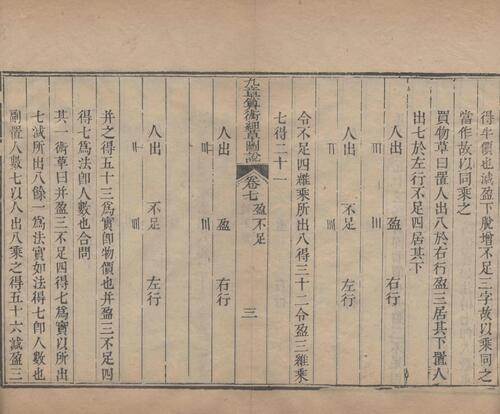 得牛價也減盈下脫增不足三字故以乘同之
當作故以同乘之
買物草曰置人出八於右行盈三居其下置人
出七於左行不足四居其下
人出 盈 右行
人出 不足 左行
令不足四維乘所出八得三十二令盈三維乘
七得二十一
九章算術細草圖說 卷七 盈不足 三
人出 盈 右行
人出 不足 左行
并之得五十三爲實卽物價也并盈三不足四
得七爲法卽人數也合問
其一術草曰并盈三不足四得七爲實以所出
七減所出八餘一爲法實如法得七卽人數也
副置人數七以人出八乘之得五十六減盈三